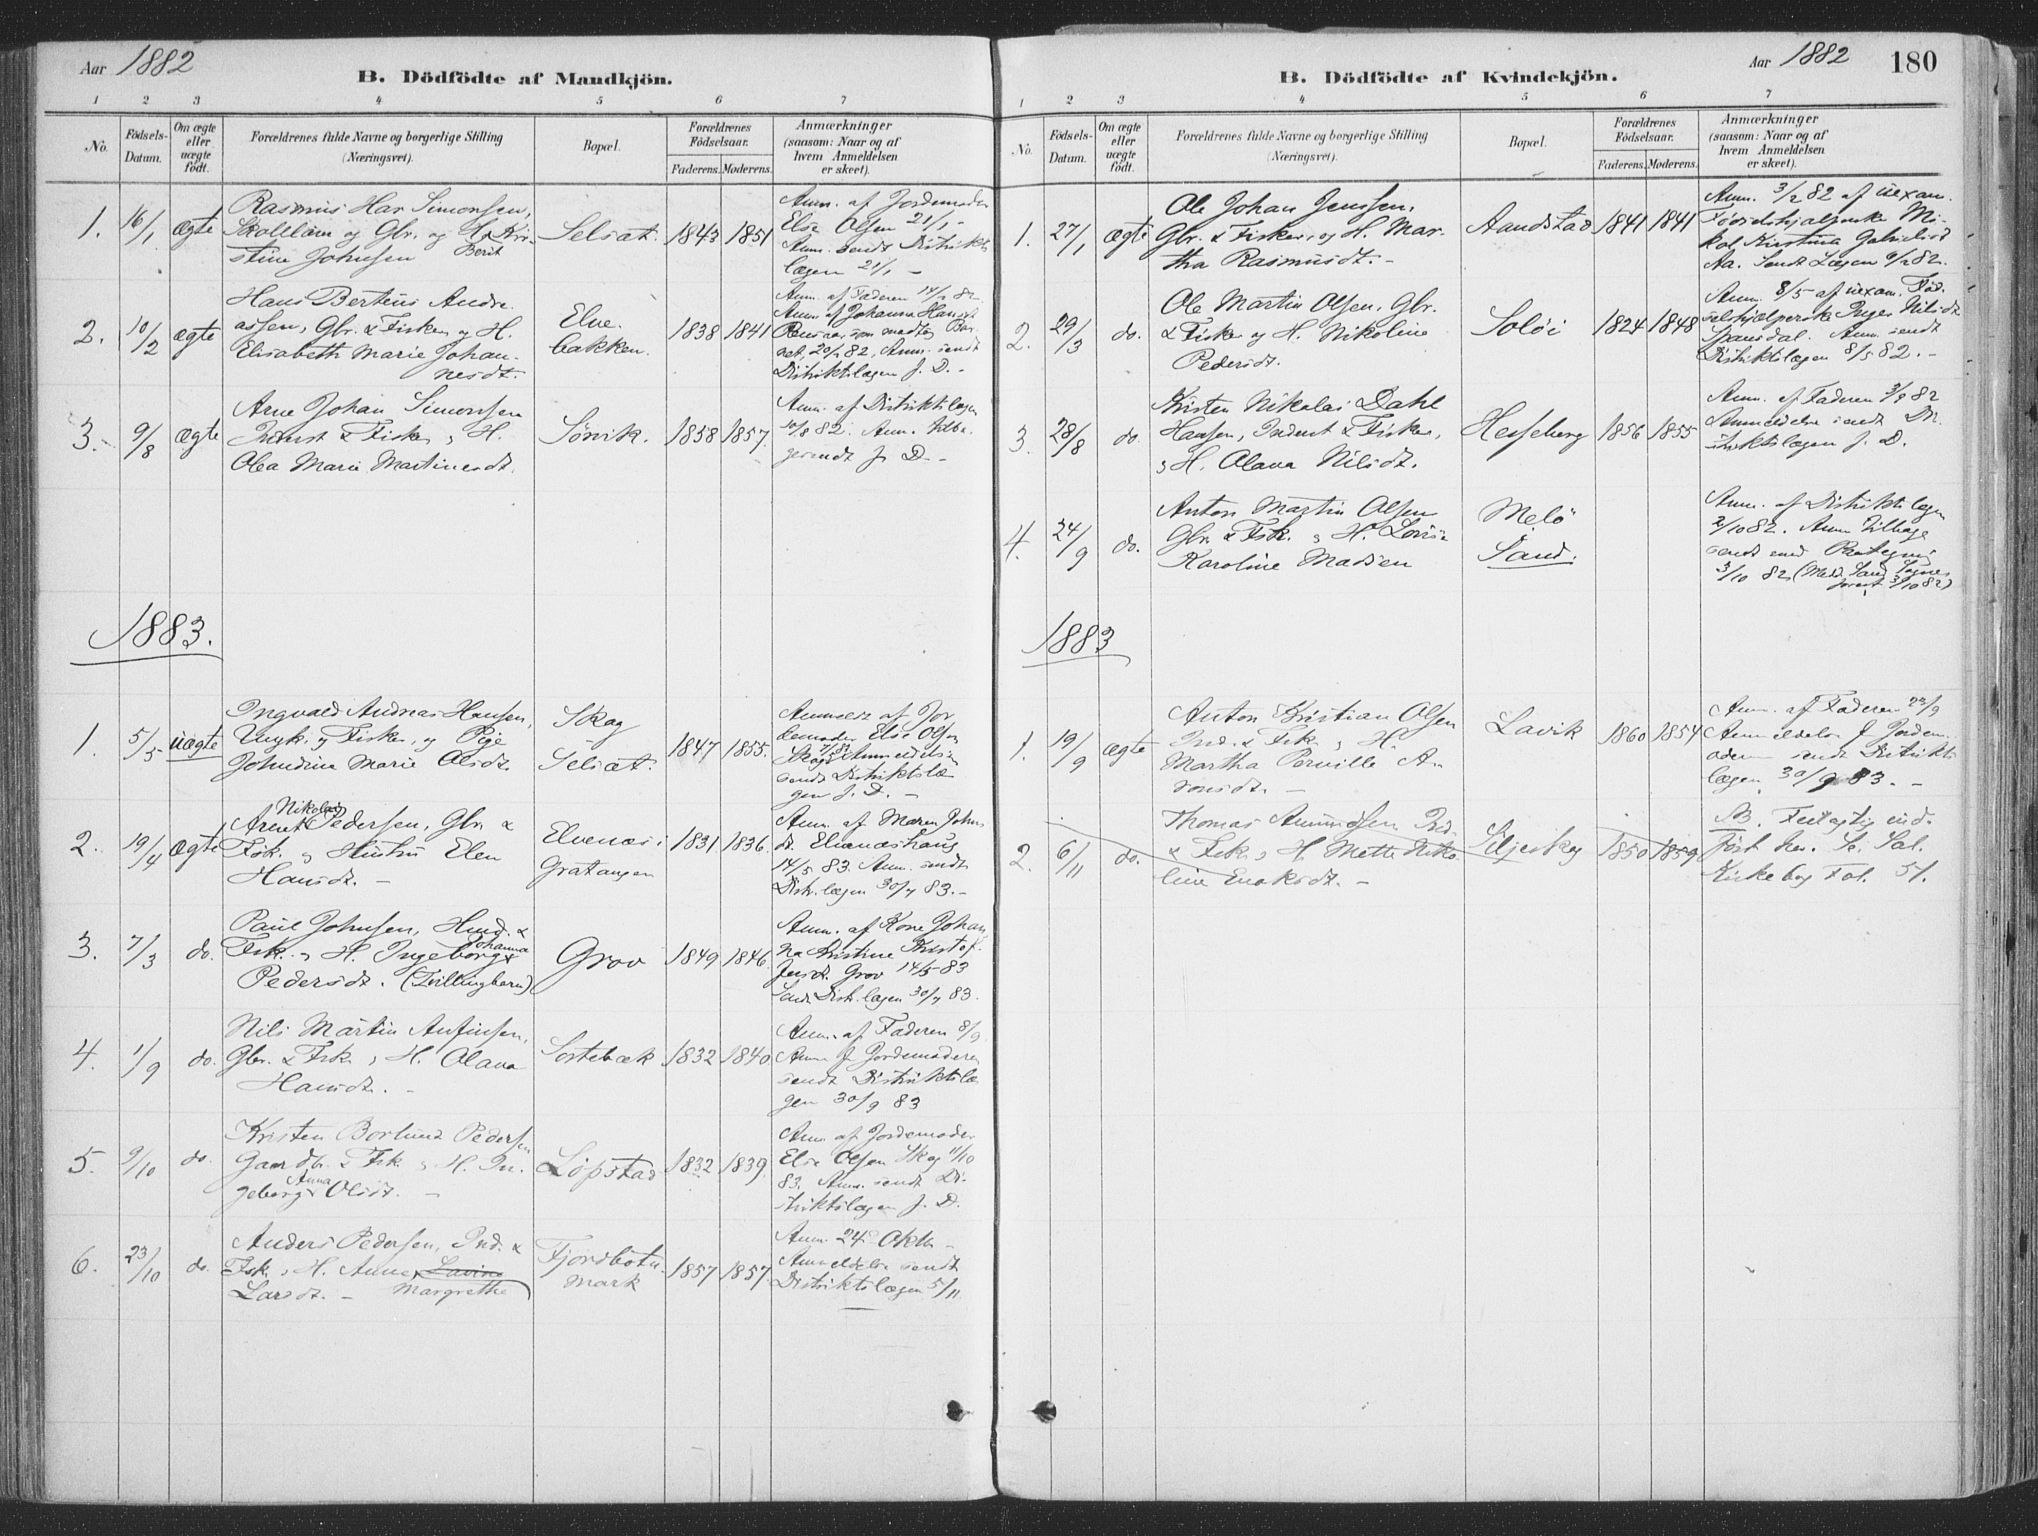 Aar 1882
B. Dödfödte af Mandkjön.
1 2 3 4 5 6 7
No.
Födsels-
Datum.
Om ægte
eller
uægte
födt.
Forældrenes fulde Navne og borgerlige Stilling
(Næringsvei).
Bopæl.
Forældrenes
Födselsaar.
Faderens. Moderens.
Anmærkninger
(saasom: Naar og af
hvem Anmeldelsen
er skeet).
1. 16/1 ægte
Rasmus Har Simonsen,
Skolelær. og Gbr. og H. Kir-
stine Johnsen Berit
Selsæt. 1843 1851
Anm. af Jordemoder
Else Olsen 21/1 -
Anm. sendt Distrikts
lægen 21/1 -
2. 10/2 ægte
Hans Berteus Andre-
assen, Gbr. & Fisker og H.
Elisabeth Marie Johan-
nesdt.
Elve-
bakken. 1838 1841
Anm. af Faderen 14/2 82
Anm. af Johanna Hansdt
Rensaa, som modtog Bar-
net, 20/2 82, Anm. sendt
Distriktslægen s. D. -
3. 9/8 ægte
Arne Johan Simonsen
Inderst & Fisker, H.
Olea Marie Martinesdt.
Sørvik. 1858 1857.
Anm. af Distriktslægen
10/8 82. Anm. tilba-
gesendt s. D. -
1883.
1. 5/5 uægte
Ingvald Andreas Hansen,
Ungk. og Fisker og Pige
Johndina Marie Olsdt.
Skog
Selsæt. 1847 1855.
Anmeldt af Jor
demoder Else Olsen
Skog 7/5 83 Anmeldelsen
sendt Distriktslæ
gen s. D. -
2. 19/4 ægte
Nikolai
Arent Pedersen, Gbr. &
Fsk. og Hustru Elen
Hansdt. -
Elvenæs i
Gratangen 1831 1836.
Anm. af Maren Johns
dt. Elvenæshaug
14/5 83. Anm. sendt
Distr. lægen 30/7 83. -
3. 7/3 do.
Paul Johnsen, Husm. &
Fsk. og H. Ingeborg Johanna
Pedersdt. (Tvillingbarn)
Grov 1849 1846.
Anm. af Kone Johan
na Kristine Kristof-
fersdt. Grov 14/5 83
Sendt Distr. lægen 30/7 83.
4. 1/9 do.
Nils Martin Anfinsen,
Gbr. & Fsk., H. Olava
Hansdt. -
Sortebæk 1832 1840.
Anm. af Faderen 8/9.
Anm. f. Jordemoderen
sendt Distriktslæ
gen 30/9 83
5. 9/10 do.
Kristen Borlund Pedersen
Gaardbr. & Fsk., H. In-
geborg Anna Olsdt. -
Løpstad 1832 1839.
Anm. af Jordemoder
Else Olsen Skog 11/10
83. Anm. sendt Di-
striktslægen s. D.
6. 23/10 do.
Anders Pedersen, Ind. &
Fsk., H. Anne Lavina
Larsdt. - Margrethe
Fjordbotn-
mark 1857 1857.
Anm. 24de Oktb -
Anmeldelse sendt
Distriktslægen 5/11.
Aar 1882 180
B. Dödfödte af Kvindekjön.
1 2 3 4 5 6 7
No.
Födsels-
Datum.
Om ægte
eller
uægte
födt.
Forældrenes fulde Navne og borgerlige Stilling
(Næringsvei).
Bopæl.
Forældrenes
Födselsaar.
Faderens. Moderens.
Anmærkninger
(saasom: Naar og af
hvem Anmeldelsen
er skeet).
1. 27/1 ægte
Ole Johan Jenssen,
Gbr. & Fisker, og H. Mar-
tha Rasmusdt. -
Aandstad 1841 1841
Anm. 3/2 82 af uexam.
Fødselshjælperske Ni-
kol. Kristina Gabrielsdt
Aa. Sendt Lægen 9/2 82.
2. 29/3 do.
Ole Martin Olsen, Gbr.
& Fisker og H. Nikoline
Pedersdt.
Soløi 1824 1848
Anm. 8/5 af uexam. Fød-
selshjælperske Inger Nilsdt
Spansdal. Anm. sendt
Distriktslægen 8/5 82. -
3. 28/8 do.
Kristen Nikolai Dahl
Hansen, Inderst & Fisker,
og H. Olava Nilsdt.
Hesseberg 1856 1855
Anm. af Faderen 3/9 82
Anmeldelse sendt Di-
striktslægen s. D.
4. 24/9 do.
Anton Martin Olsen
Gbr. & Fsk. og H. Lovise
Karoline Madsen
Melø
Sand.
Anm. af Distriktslægen
2/10 82. Anm. tilbage
sendt med Paategning
3/10 82 (Medd. Sand Sogne-
præst 3/10 82)
1883
1. 19/9 ægte
Anton Kristian Olsen
Ind. & Fsk. og H.
Martha Pernille A-
ronsdt. -
Lavik 1860 1854
Anm. af Faderen 22/9
Anmeldelse f. Jordem-
oderen sendt Distrikts
lægen 30/9 83. -
2. 6/11 do.
Thomas Amundsen Ind.
& Fsk. og H. Mette Niko-
line Enoksdt. -
Seljeskog 1850 1859
NB. Feilagtig ind-
ført her. Se Sal.
Kirkebog Fol. 51.